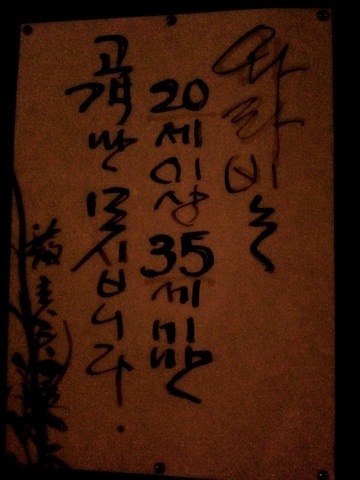 와라비는
20세이상 35세미만
고객만 모십니다.